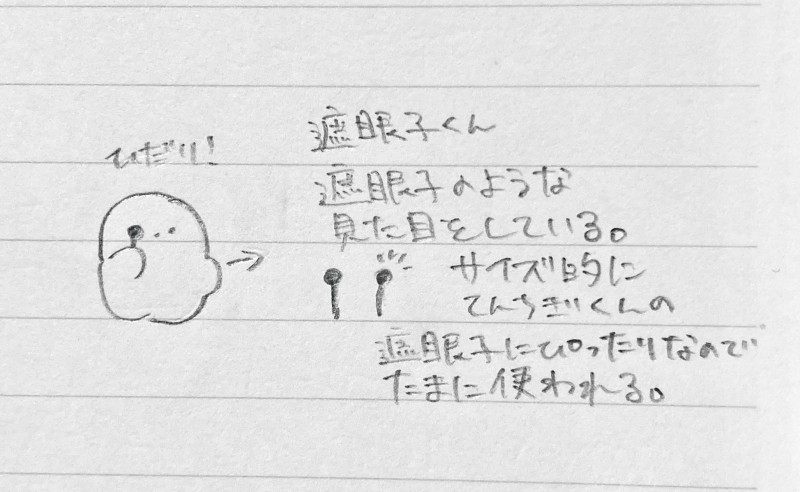 ひだり!
遮眼子くん
遮眼子のような
見た目をしている。
サイズ的に
てんちぎくんの
遮眼子にぴったりなので
たまに使われる。